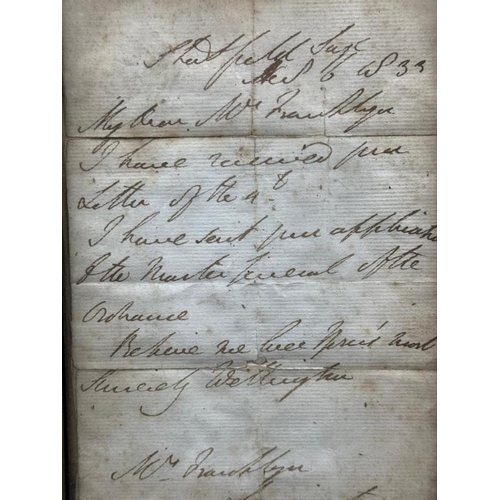 Strathfield Saye
6 1833
My Dear Mrs Franklyn
I have received your
Letter of the 4th
I have sent your application
to the Master General of the
Ordnance
Believe me Ever Yours most
Sincerely Wellington
Mrs Franklyn